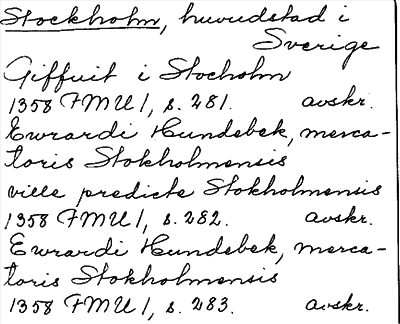 Stockholm, huvudstad i
Sverige
Giffuit i Stocholm
1358 FMU I, s. 281. avskr.
Ewrardi Hundebek, merca-
toris Stokholmensis
ville predicte Stokholmensis
1358 FMU I, s. 282. avskr.
Ewrardi Hundebek, merca-
toris Stokholmensis
1358 FMU I, s. 283. avskr.